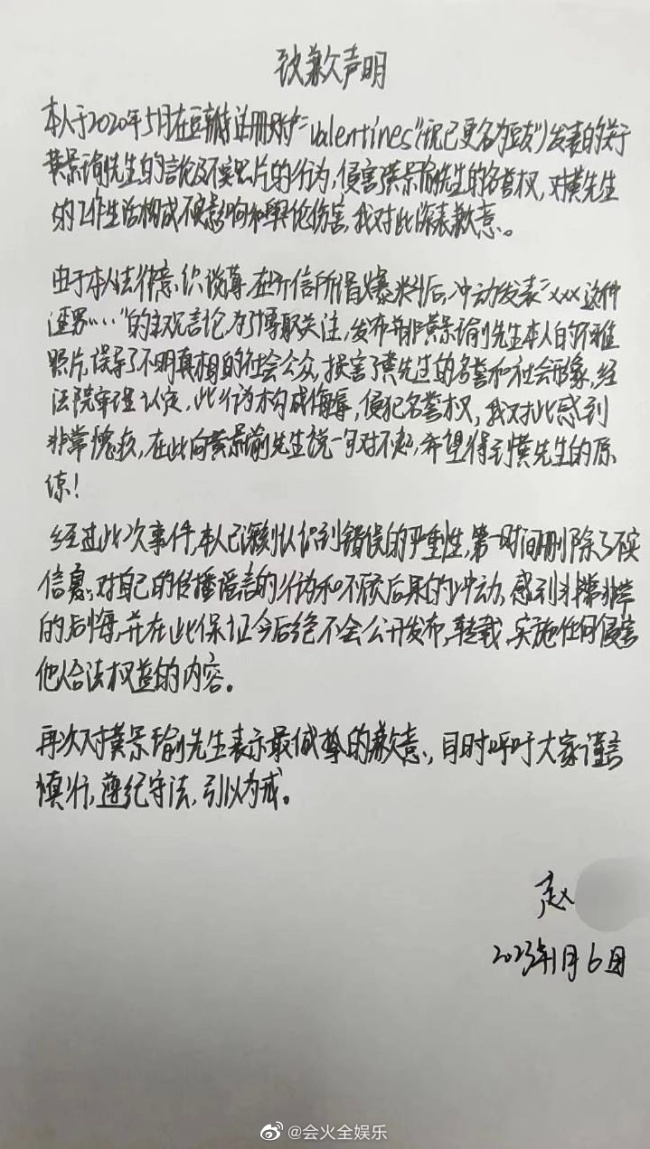 致歉声明
本人于2020年5月在豆瓣注册账户"valentines"(现已更名为豆友)发表的关于
黄景瑜先生的言论及不实照片的行为,侵害黄景瑜先生的名誉权,对黄先生
的工作生活构成不良影响和舆论伤害,我对此深表歉意。
由于本人法律意识淡薄,在听信所谓爆料后,冲动发表"xxx这种
渣男……"的主观言论,为了博取关注,发布并非黄景瑜先生本人的不雅
照片,误导了不明真相的社会公众,损害了黄先生的名誉和社会形象,经
法院审理认定,此行为构成侮辱,侵犯名誉权,我对此感到
非常愧疚,在此向黄景瑜先生说一句对不起,希望得到黄先生的原
谅!
经过此次事件,本人已深刻认识到错误的严重性,第一时间删除了不实
信息,对自己的传播谣言的行为和不顾后果的冲动,感到非常非常
的后悔,并在此保证今后绝不会公开发布,转载,实施任何侵害
他人合法权益的内容。
再次对黄景瑜先生表示最诚挚的歉意,同时呼吁大家谨言
慎行,遵纪守法,引以为戒。
赵
2023年1月6日
@会火全娱乐